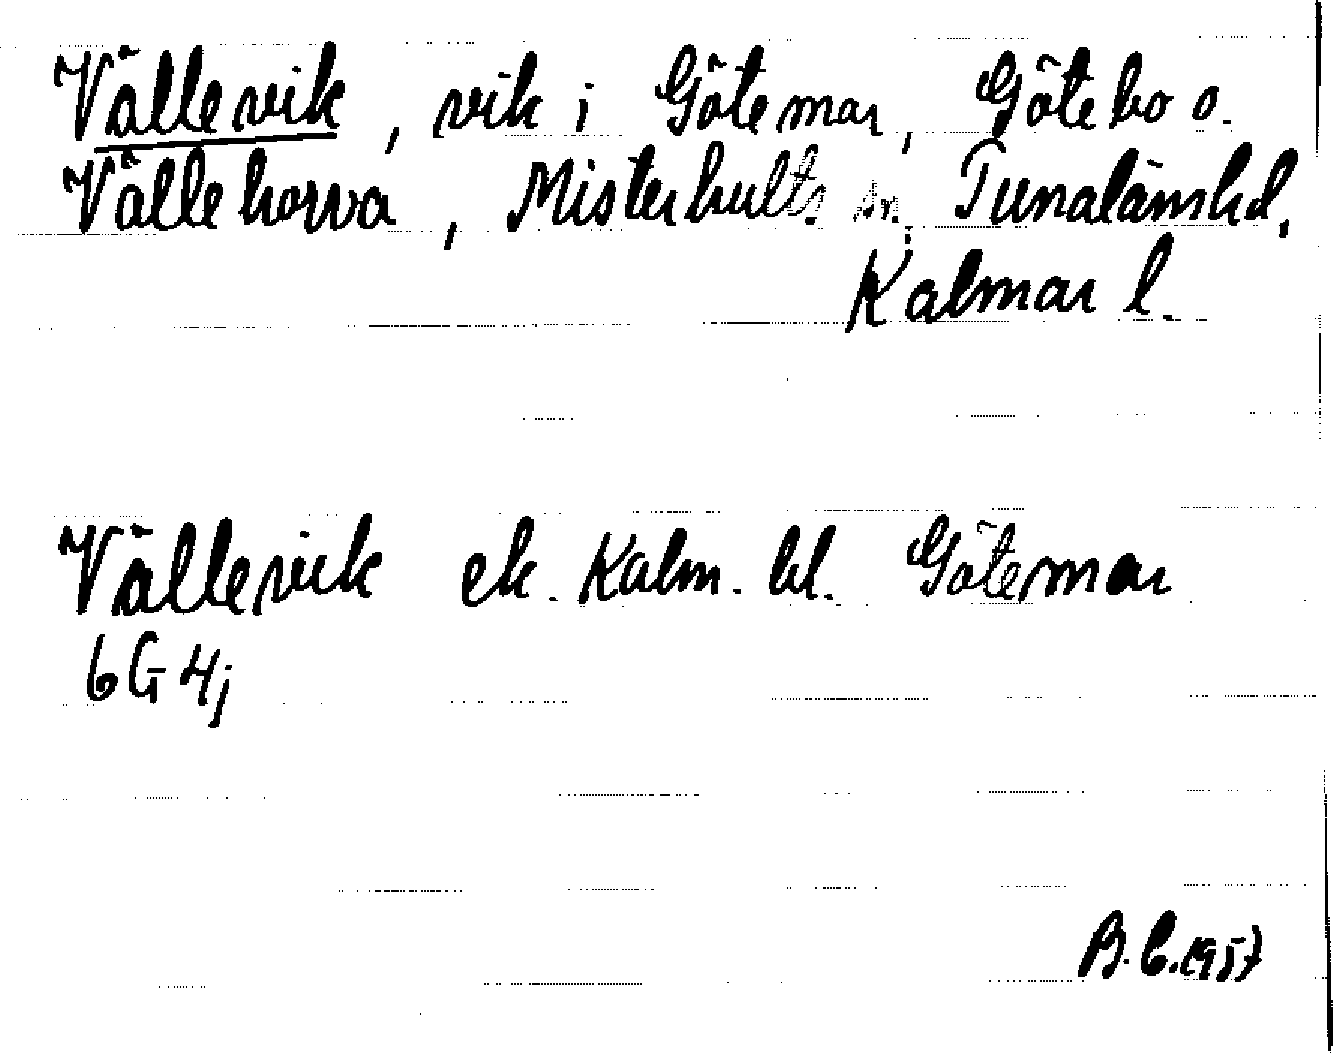 Vällevik, vik i Götemar, Götebo o.
Vällehorva, Misterhults sn, Tunaläns hd,
Kalmar l.
Vällevik ek. Kalm. bl. Götemar
6G 4j
B.C. 1957